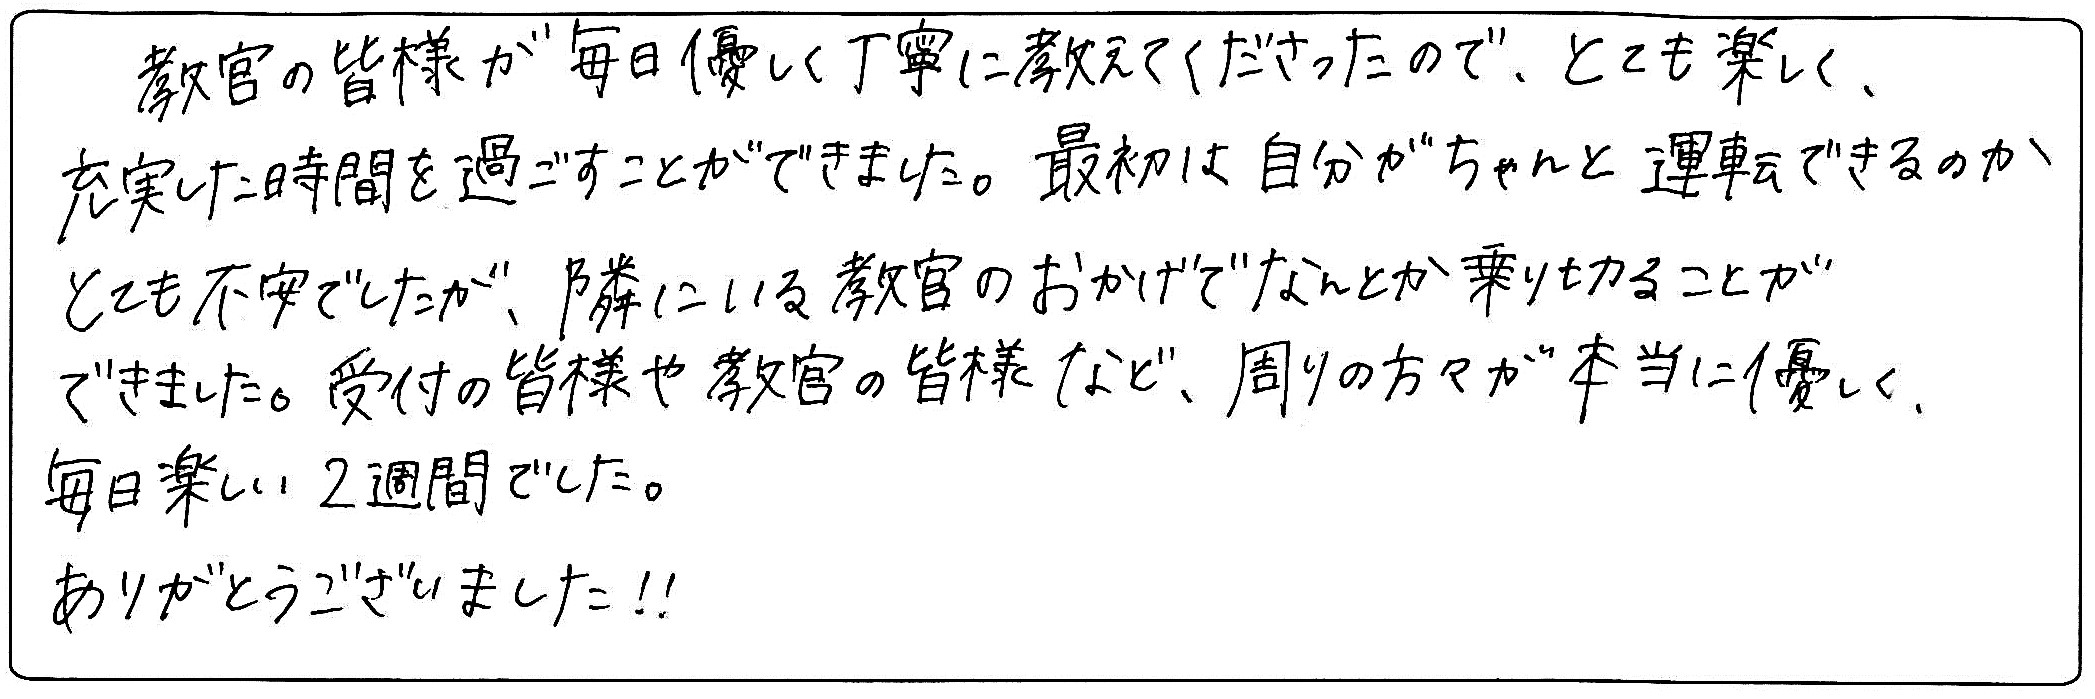 教官の皆様が毎日優しく丁寧に教えてくださったので、とても楽しく、
充実した時間を過ごすことができました。最初は自分がちゃんと運転できるのか
とても不安でしたが、隣にいる教官のおかげでなんとか乗り切ることが
できました。受付の皆様や教官の皆様など、周りの方々が本当に優しく、
毎日楽しい2週間でした。
ありがとうございました!!